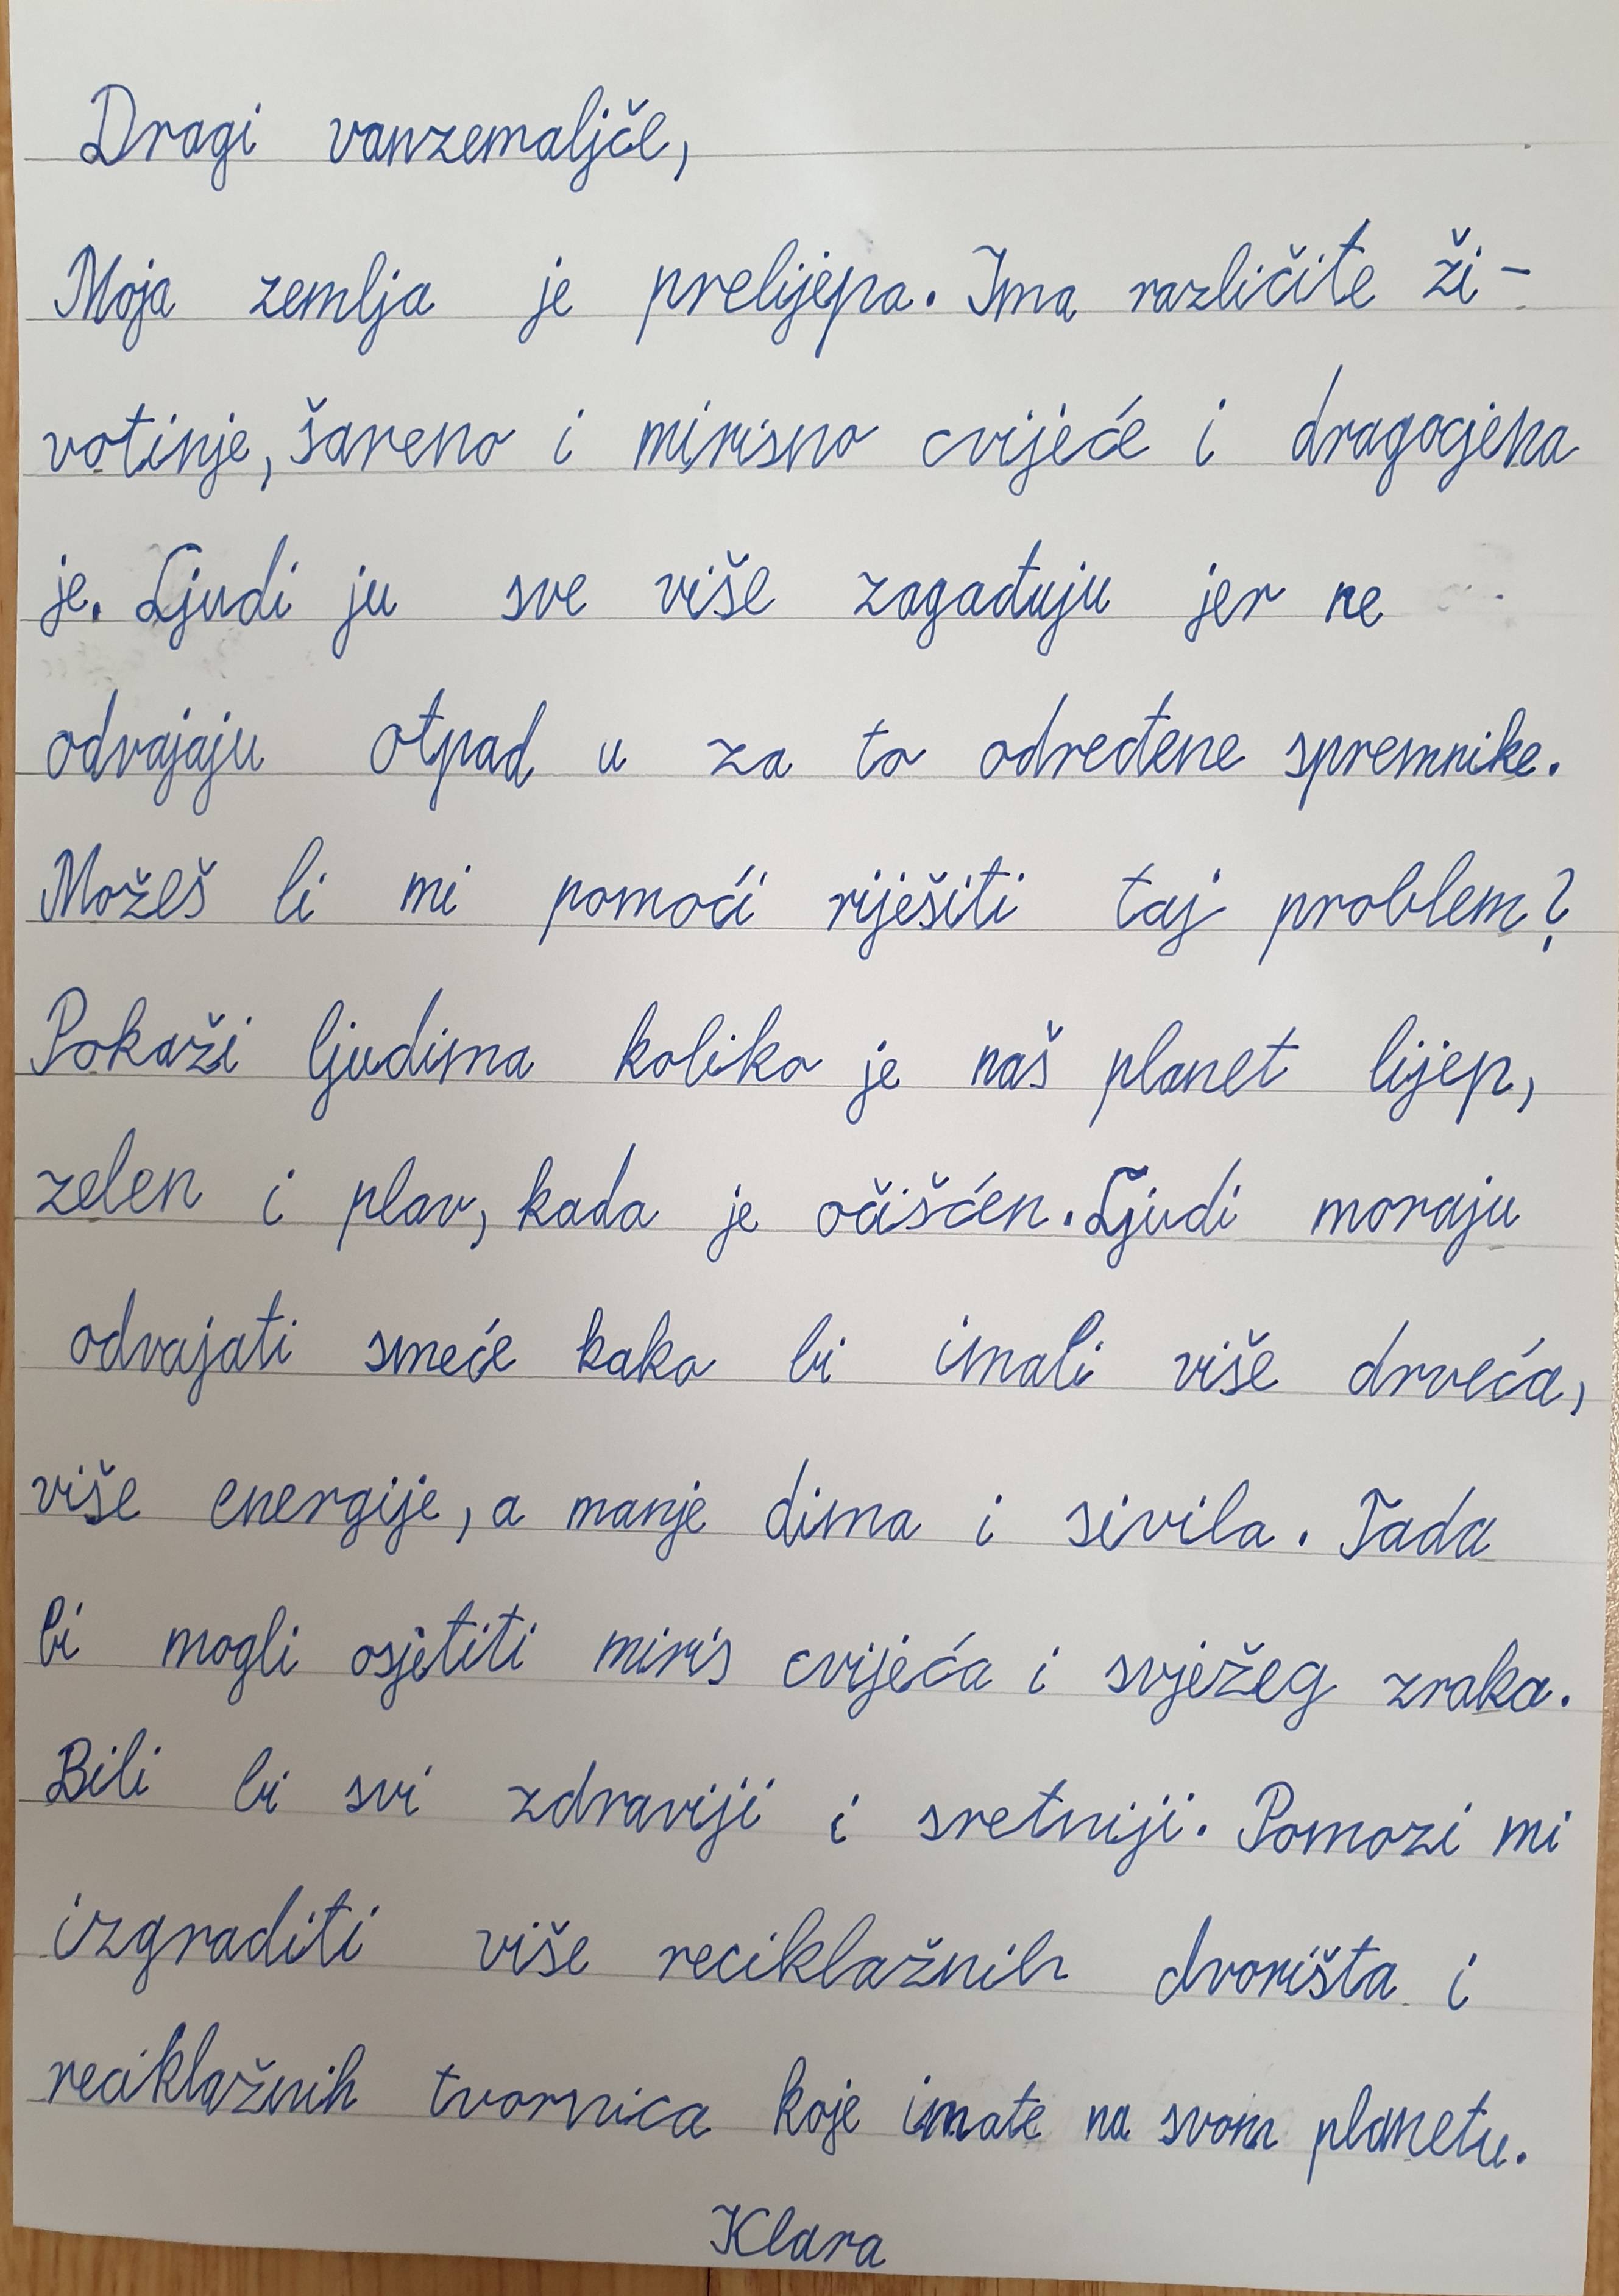 Dragi vanzemaljče,
Moja zemlja je prelijepa. Ima različite ži-
votinje, šareno i mirisno cvijeće i dragocjena
je. Ljudi ju sve više zagađuju jer ne
odvajaju otpad u za to određene spremnike.
Možeš li mi pomoći riješiti taj problem?
Pokaži ljudima koliko je naš planet lijep,
zelen i plav, kada je očišćen. Ljudi moraju
odvajati smeće kako bi imali više drveća,
više energije, a manje dima i sivila. Tada
bi mogli osjetiti miris cvijeća i svježeg zraka.
Bili bi svi zdraviji i sretniji. Pomozi mi
izgraditi više reciklažnih dvorišta i
reciklažnih tvornica koje imate na svom planetu.
Klara